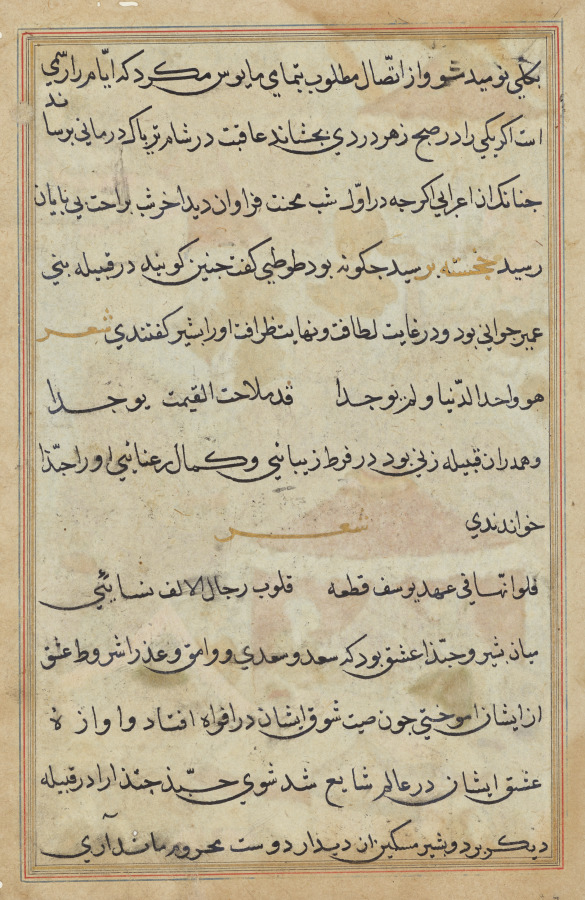 بکلی نومید شو و از اتصال مطلوب بتمامی مایوس مکرد که ایام را رسمی
است اکر یکی را در صبح زهر دردی بچشاند عاقبت در شام تریاک درمانی برساند
چنانک ان اعرابی اکرچه در اول شب محنت فراوان دید اخر شب براحت بی پایان
رسید خجسته پرسید جکونه بود طوطی کفت جنین کویند در قبیله بنی
عمیر جوانی بود و در غایت لطافت و نهایت ظرافت اورا بشیر کفتندی شعر
هو واحد الدنیا و لم یوجدا قد ملاحت القیمت یوجدا
و همدران قبیله زنی بود در فرط زیبائی و کمال رعنائی اورا جنذا
خواندندی شعر
فلو انها فی عهد یوسف قطعه قلوب رجال لا لف نسائی
میان بشیر و جنذا عشق بود که سعد و سعدی و وامق و عذرا شروط عشق
از ایشان اموختی جون صیت شوق ایشان در افواه افتاد و اوازه
عشق ایشان در عالم شایع شد شوی جنذا را در قبیله
دیکر برد و بشیر مسکین از دیدار دوست محروم ماند اری